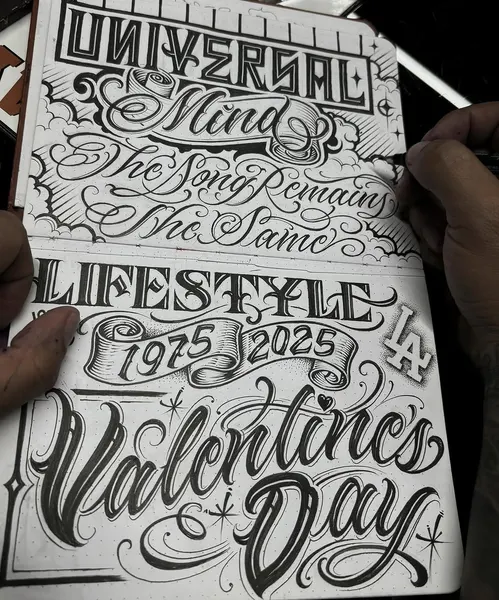 UNIVERSAL
Mind
The Song Remains
The Same
LIFESTYLE
1975 2025
LA
Valentine's
Day